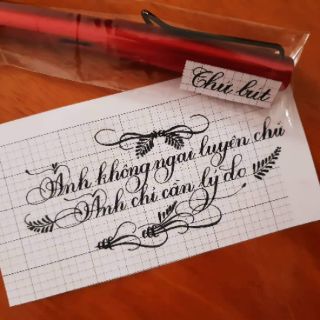 Chữ bút
Anh không ngại luyện chữ
Anh chỉ cần lý do